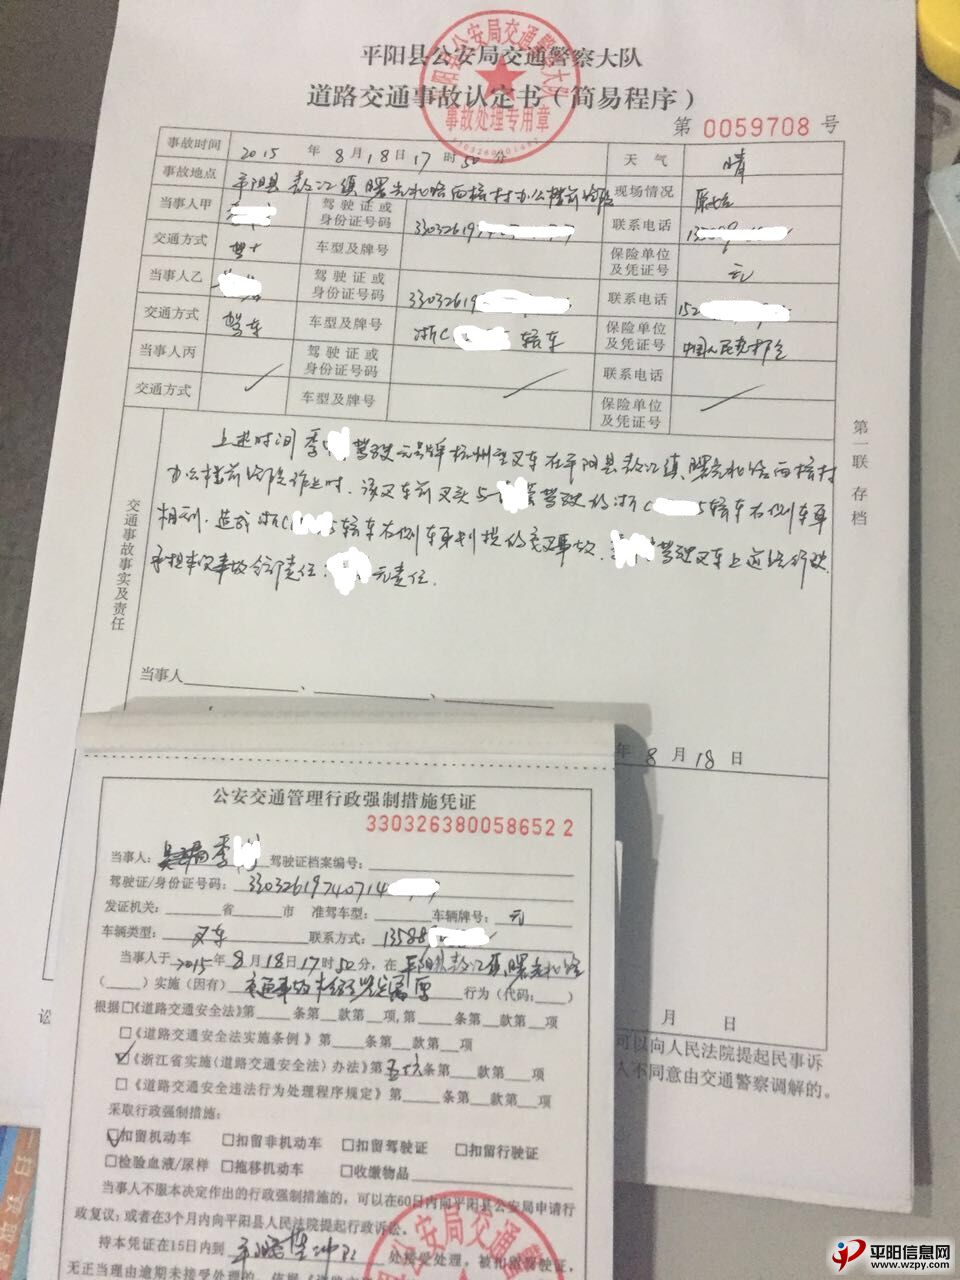 平阳县公安局交通警察大队
道路交通事故认定书(简易程序)
事故处理专用章
第 0059708 号
事故时间 2015 年 8 月 18 日 17 时 50 分 天气 晴
事故地点 平阳县敖江镇曙光北路西桥村办公楼前路段 现场情况
当事人甲 驾驶证或身份证号码 33032619 联系电话
交通方式 驾车 车型及牌号 保险单位及凭证号 无
当事人乙 驾驶证或身份证号码 33032619 联系电话 152
交通方式 驾车 车型及牌号 浙C 轿车 保险单位及凭证号 中国人民
当事人丙 驾驶证或身份证号码 联系电话
交通方式 车型及牌号 保险单位及凭证号
第一联 存档
交通事故事实及责任
上述时间 季 驾驶无号牌杭州型叉车在平阳县敖江镇曙光北路西桥村
办公楼前路段作业时,该叉车前叉与 驾驶的浙C 5轿车右侧车身
相刮,造成浙C 5轿车右侧车身刮损的交通事故. 驾驶叉车上道路行驶
承担本次事故全部责任. 无责任.
当事人
年 8 月 18 日
公安交通管理行政强制措施凭证
330326380058652 2
当事人: 季 驾驶证档案编号:
驾驶证/身份证号码: 33032619740714
发证机关: 省 市 准驾车型: 车辆牌号: 无
车辆类型: 叉车 联系方式: 13588
当事人于 2015 年 8 月 18 日 17 时 50 分, 在 平阳县敖江镇曙光北路
( ) 实施(因有) 交通事故 行为(代码: )
根据□《道路交通安全法》第 条第 款第 项, 第 条第 款第 项
□《道路交通安全法实施条例》第 条第 款第 项
《浙江省实施〈道路交通安全法〉办法》第 五十六 条第 款第 项
□《道路交通安全违法行为处理程序规定》第 条第 款第 项
采取行政强制措施:
扣留机动车 □扣留非机动车 □扣留驾驶证 □扣留行驶证
□检验血液/尿样 □拖移机动车 □收缴物品
当事人不服本决定作出的行政强制措施的, 可以在60日内向平阳县公安局申请行
政复议; 或者在3个月内向平阳县人民法院提起行政诉讼。
持本凭证在15日内到 处接受处理, 被扣留驾驶证,
无正当理由逾期未接受处理的, 依据《道路
月 日
讼
可以向人民法院提起民事诉
人不同意由交通警察调解的。
公安局交通
平阳信息网
www.wzpy.com